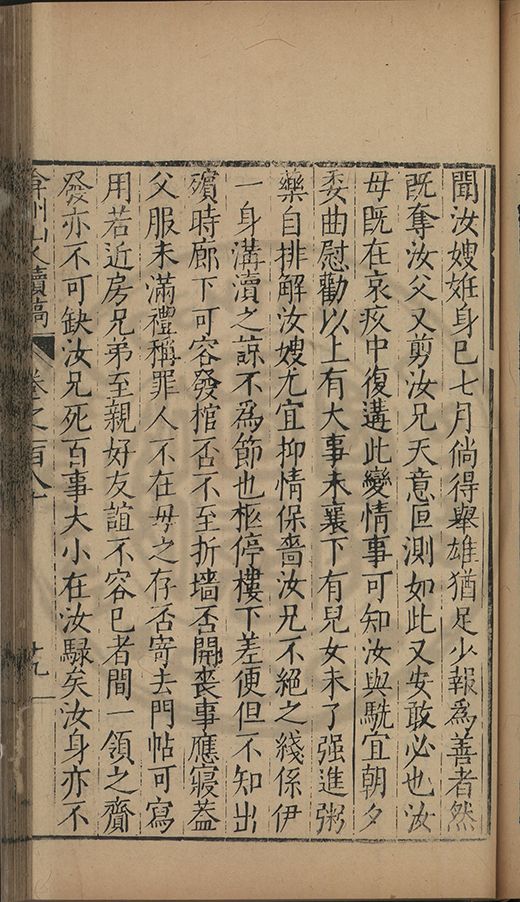 聞汝嫂姙身已七月倘得舉雄猶足少報為善者然
既奪汝父又剪汝兄天意叵測如此又安敢必也汝
母既在哀疚中復遘此變情事可知汝與駪宜朝夕
委曲慰勸以上有大事未襄下有兒女未了强進粥
藥自排解汝嫂尤宜抑情保嗇汝兄不絕之綫係伊
一身溝瀆之諒不為節也柩停樓下差便但不知出
殯時廊下可容發棺否不至折墻否開喪事應寢葢
父服未滿禮稱罪人不在母之存否寄去門帖可寫
用若近房兄弟至親好友誼不容已者間一領之齎
發亦不可缺汝兄死百事大小在汝騄矣汝身亦不
弇州山人續稿
卷之一百八十
十九